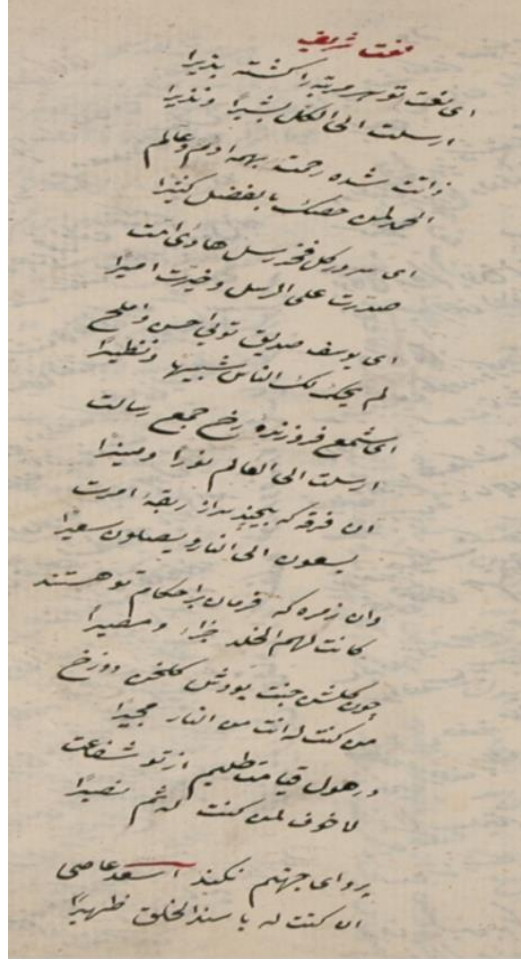 نعت شریف
ای نعت تو هر مرتبه را گشته پذیرا
ارسلت الی الکل بشیرًا و نذیرا
ذاتت شده رحمت بهمه آدم و عالم
الحمد لمن خصك بالفضل کثیرا
ای سرور کل فخر رسل هادی امت
صدرت علی الرسل و خیرت امیرا
ای یوسف صدیق توئی احسن و املح
لم یحك لك الناس شبیها و نظیرًا
ای شمع فروزنده رخ جمع رسالت
ارسلت الی العالم نورا و منیرا
ان فرقه که بیچند سر از ربقهٔ امرت
یسعون الی النار و یصلون سعیرًا
وان زمره که فرمان بر احکام تو هستند
کانت لهم الخلد جزاءً و مصیرًا
چون گلشن جنت بودش گلخن دوزخ
من کنت له انت من النار مجیرًا
در هول قیامت طلبم از تو شفاعت
لا خوف لمن کنت له ثم نصیرًا
پروای جهنم نکند اسعد عاصی
ان کنت له یا سند الخلق ظهیرًا